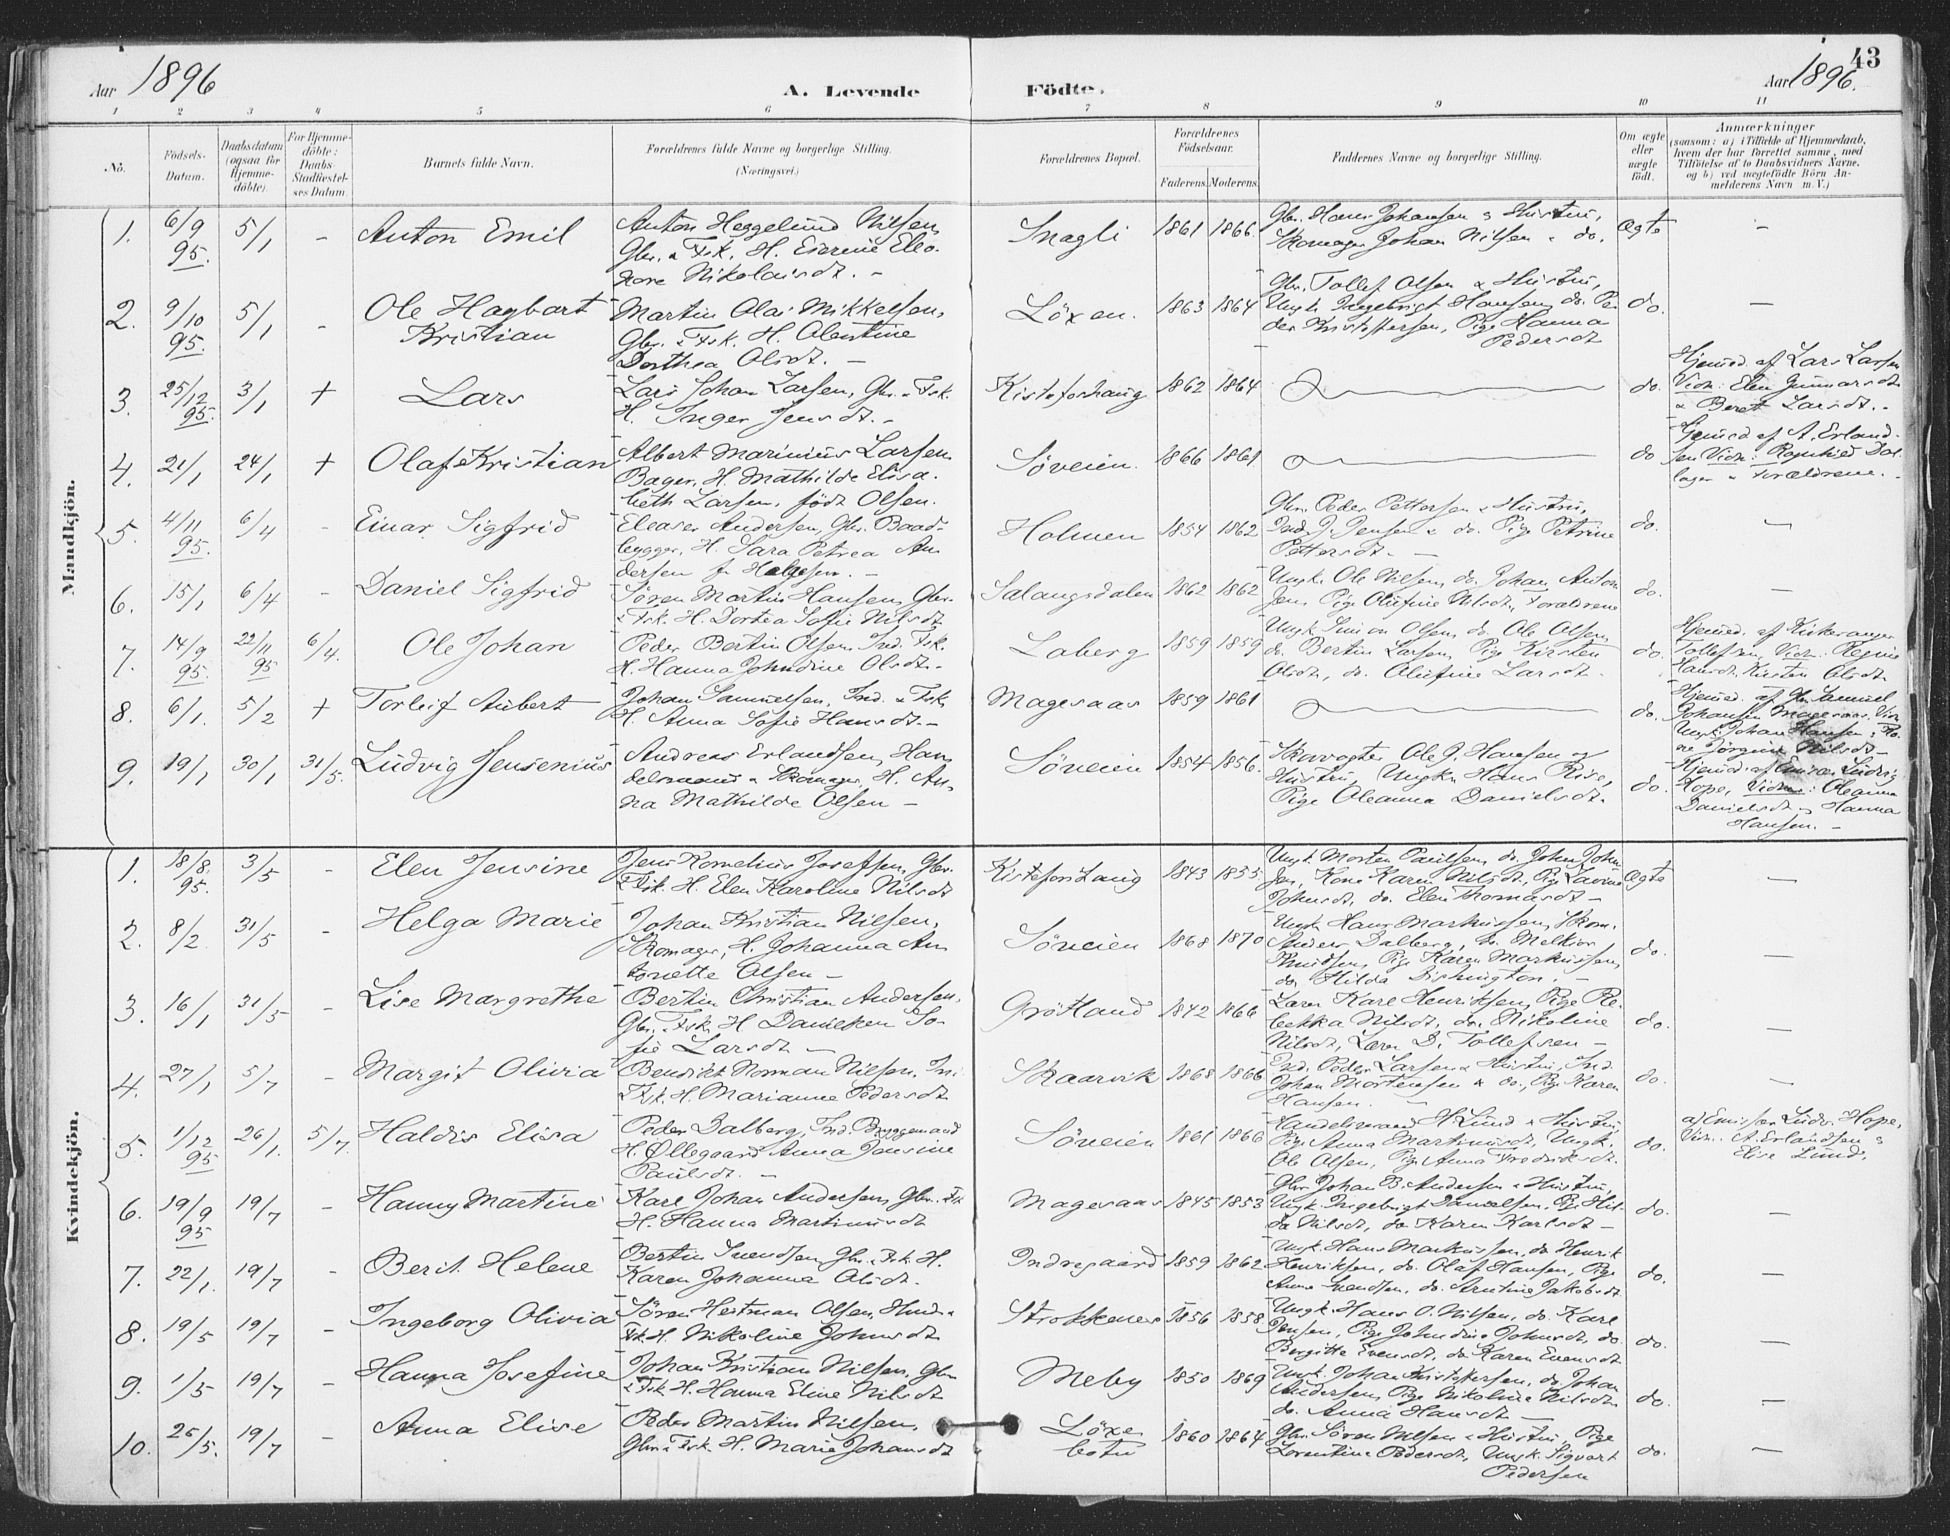 43
Aar 1896 A. Levende Födte. Aar 1896.
1 2 3 4 5 6 7 8 9 10 11
No.
Födsels-Datum.
Daabsdatum (ogsaa for Hjemme-döbte)
For Hjemme-döbte: Daabs-Stadfæstel-ses Datum.
Barnets fulde Navn.
Forældrenes fulde Navne og borgerlige Stilling.
(Næringsvei.)
Forældrenes Bopæl.
Forældrenes Födselsaar.
Faderens. Moderens.
Faddernes Navne og borgerlige Stilling.
Om ægte eller uægte födt.
Anmærkninger
(saasom: a) i Tilfælde af Hjemmedaab,
hvem der har forrettet samme, med
Tilföielse af to Daabsvidners Navne,
og b) ved uægtefödte Börn An-
melderens Navn m. V.)
Mandkjön.
1. 6/9 95. 5/1 - Anton Emil
Anton Heggelund Nilsen,
Gbr. & Fsk. H. Eleo-
nore Nikolaisdt. -
Snagli 1861 1866.
Gbr. Hans Johansen & Hustru,
Skomager Johan Nilsen & do.
Ægte -
2. 9/10 95. 5/1 - Ole Hagbart
Kristian
Martin Olai Mikkelsen,
Gbr. & Fsk. H. Olentine
Dorthea Olsdt. -
Löxen. 1863 1864
Gbr. Tollef Olsen & Hustru,
Ungk. Ingebrigt Hansen, do. Pe-
der Kristoffersen, Pige Hanna
Pedersdt
do. -
3. 25/12 95. 3/1 + Lars
Lars Johan Larsen, Gbr. & Fsk.
H. Inger Jensdt. -
Kistefoshaug 1862 1864
do.
Hjemmed. af Lars Larsen
Vidn: Elen Gunnarsdt
& Beret Larsdt. -
4. 21/1 24/1 + Olaf Kristian
Albert Marinius Larsen
Bager, H. Mathilde Elisa-
beth Larsen, födt Olsen.
Söveien. 1866 1861
do
Hjemmed af A. Erland-
sen Vidn: Ragnhild Dal-
lager & Forældrene. -
5. 4/11 95. 6/4 - Einar Sigfrid
Eleaser Andersen, Gbr. Baad-
bygger, H. Sara Petrea An-
dersen f. Helgesen. -
Holmen 1854 1862
Gbr. Peder Pettersen & Hustru,
Ind. J. Jensen & do. Pige Petrine
Pettersdt. -
do. -
6. 15/1 6/4 - Daniel Sigfrid
Sören Martin Hansen, Gbr.
& Fsk. H. Dortea Sofie Nilsdt
Salangsdalen 1862 1862
Ungk. Ole Nilsen, do. Johan Anton
Jens. Pige Olufine Nilsdt, Forældrene
do. -
7. 14/9 95. 22/11 95 6/4. Ole Johan
Peder Bertin Olsen, Ind. Fsk.
H. Hanna Johndine Olsdt. -
Laberg 1859 1859
Ungk. Simon Olsen, do. Ole Olsen,
do. Bertin Larsen, Pige Kirsten
Olsdt, do. Olufine Larsdt.
do.
Hjemmed. af Kirkesanger
Tollefsen, Vidn: Regine
Hansdt. Kirsten Olsdt
8. 6/1. 5/2 + Torleif Aubert
Johan Samuelsen, Ind. & Fsk.
H. Anna Sofie Hansdt. -
Magesaas 1859 1861
do.
Hjemmed. af Samuel
Johansen Magesaas. Vidn.
Ungk. Johan Hansen &
Jörgine Nilsdt -
9. 19/1 30/1 31/5. Ludvig Jensenius
Andreas Erlandsen, Han-
delsmand & Skomager, H. An-
na Mathilde Olsen -
Söveien 1854 1856.
Skovvogter Ole J. Hansen og
Hustru, Ungkn Hans Rise,
Pige Oleanna Danielsdt.
do.
Hjemmed. af Emissær Ludvig
Hope, Vidne: Oleanna
Danielsdt & Hanna
Hansen. -
Kvindekjön.
1. 18/8. 95. 3/5 - Elen Jensine
Jens Kornelius Josefsen, Gbr.
& Fsk. H. Elen Karoline Nilsdt
Kistefoshaug 1843 1855
Ungk. Morten Paulsen, do. Johan John-
sen, Kone Karen Nilsdt, Pige Lavine
Johnsdt, do. Elen Thomasdt -
Ægte -
2. 8/2 31/5 - Helga Marie
Johan Kristian Nilsen,
Skomager, H. Johanna An-
toniette Olsen -
Söveien 1868 1870
Ungk Hans Markussen, Skom.
Anders Dalberg, do. Melkior
Knutsen, Pige Karen Markussen,
do. Hilda -
do. -
3. 16/1 31/5 - Lise Margrethe
Bertin Christian Andersen,
Gbr. & Fsk. H. Daniken So-
fie Larsdt -
Gröttland 1842 1866
Lærer Karl Henriksen, Pige Re-
bekka Nilsdt, do. Nikoline
Nilsdt, Lærer D. Tollefsen -
do. -
4. 27/1 5/7 - Margit Olivia
Benedikt Norman Nilsen, Ind.
Fsk. H. Marianne Pedersdt
Skaarvik 1868 1866
Ind. Peder Larsen & Hustru, Ind.
Johan Mortensen & do., Pige Karen
Hansen. -
do. -
5. 1/12 95 26/1. 5/7. Haldis Elisa
Peder Dalberg, Ind. Bryggemand
H. Øllegaard Anna Jensine
Paulsdt. -
Söveien 1861 1866
Handelsmand H. Lund & Hustru,
Pige Anna Martinusdt, Ungk.
Ole Olsen, Pige Anna Fredriksdt.
do.
a) Emissær Ludv. Hope,
Vidn. A. Erlandsen &
Elise Lund.
6. 19/9 95 19/7 - Hanny Martine
Karl Johan Andersen, Gbr. Fsk
H. Hanna Martinusdt
Magesaas 1845 1853
Gbr. Johan B. Andersen & Hustru,
Ungk. Ingebrigt Danielsen, Pige Hil-
da Nilsdt, do Karen Karlsdt -
do. -
7. 22/1. 19/7 - Berit Helene
Bertin Svendsen, Gbr. & Fsk. H.
Karen Johanna Olsdt.
Indregaard 1859 1862
Ungk. Hans Markussen, do. Henrik
Henriksen, do. Olaf Hansen, Pige
Anna Svendsen, do. Arntine Jakobsdt
do. -
8. 19/5 19/7 - Ingeborg Olivia
Sören Hertman Olsen, Husm. &
Fsk. H. Nikoline Johnsdt
Strokkenes 1856 1858
Ungk. Hans O. Nilsen, do. Karl
Jensen, Pige Johndine Johnsdt, do.
Bergitte Evensdt, do. Karen Evensdt
do. -
9. 1/5 19/7 - Hanna Josefine
Johan Kristian Nilsen, Gbr
& Fsk. H. Hanna Eline Nilsdt
Meby 1850 1869
Ungk. Johan Kristoffersen, do. Johan
Andersen, Pige Nikoline Nilsdt,
do. Anna Hansdt -
do. -
10. 26/5. 19/7 - Anna Elise
Peder Martin Nilsen,
Gbr. & Fsk. H. Marie Johansdt
Löxe-
botn 1860 1864
Gbr. Sören Nilsen & Hustru, Pige
Lorentine Pedersdt, Ungk. Sigvart
Pedersen
do. -